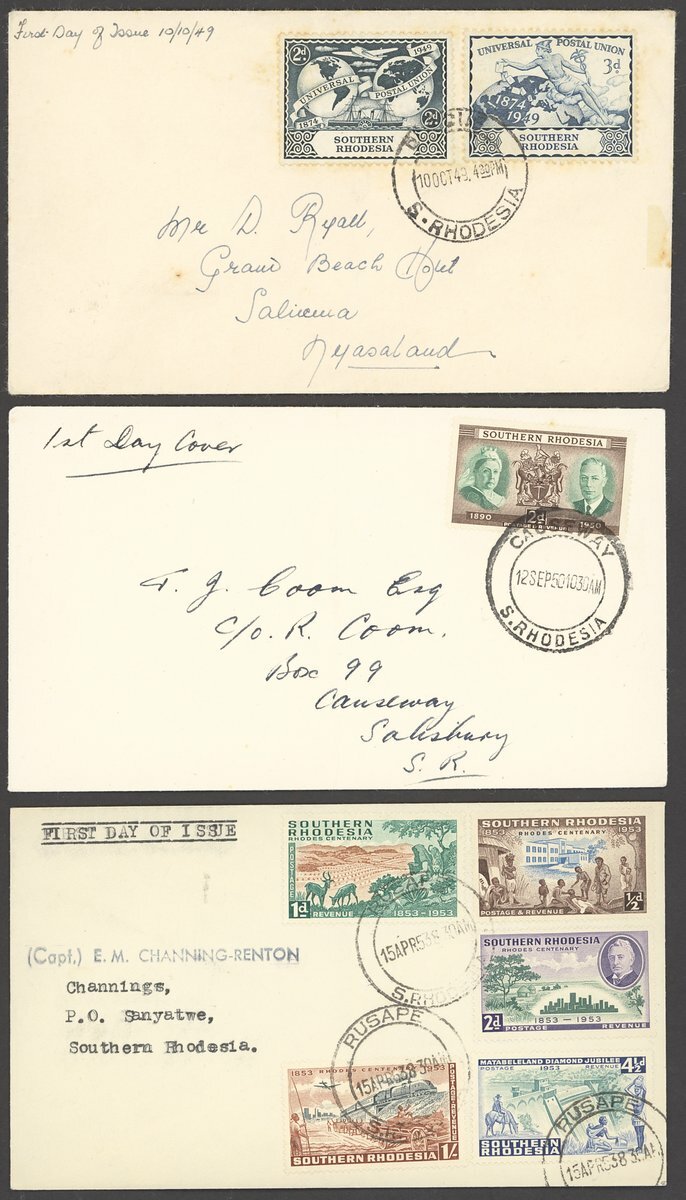 First Day of Issue 10/10/49
2d 1949
UNIVERSAL POSTAL UNION
1874 2d
SOUTHERN
RHODESIA
UNIVERSAL POSTAL UNION
3d
1874
1949
SOUTHERN
RHODESIA
10 OCT 49. 4 30PM
S. RHODESIA
Mr D. Ryall,
Grand Beach Hotel
Salima
Nyasaland
1st Day Cover
SOUTHERN RHODESIA
1890 2d 1950
POSTAGE & REVENUE
CAUSEWAY
12 SEP 50 10 30AM
S. RHODESIA
T. J. Coom Esq
c/o. R. Coom.
Box 99
Causeway
Salisbury
S. R.
FIRST DAY OF ISSUE
SOUTHERN
RHODESIA
RHODES CENTENARY
POSTAGE
1d REVENUE 1853-1953
SOUTHERN RHODESIA
1853 RHODES CENTENARY 1953
POSTAGE & REVENUE ½d
RUSAPE
15 APR 53 8 30AM
S. RHODESIA
(Capt.) E. M. CHANNING-RENTON
Channings,
P.O. Sanyatwe,
Southern Rhodesia.
SOUTHERN RHODESIA
1853 — 1953
2d POSTAGE REVENUE
RUSAPE
15 APR 53 8 30AM
1853 RHODES CENTENARY 1953
POSTAGE REVENUE
SOUTHERN RHODESIA 1/-
MATABELELAND DIAMOND JUBILEE
POSTAGE 1953 REVENUE 4½d
SOUTHERN
RHODESIA
RUSAPE
15 APR 53 8 30AM